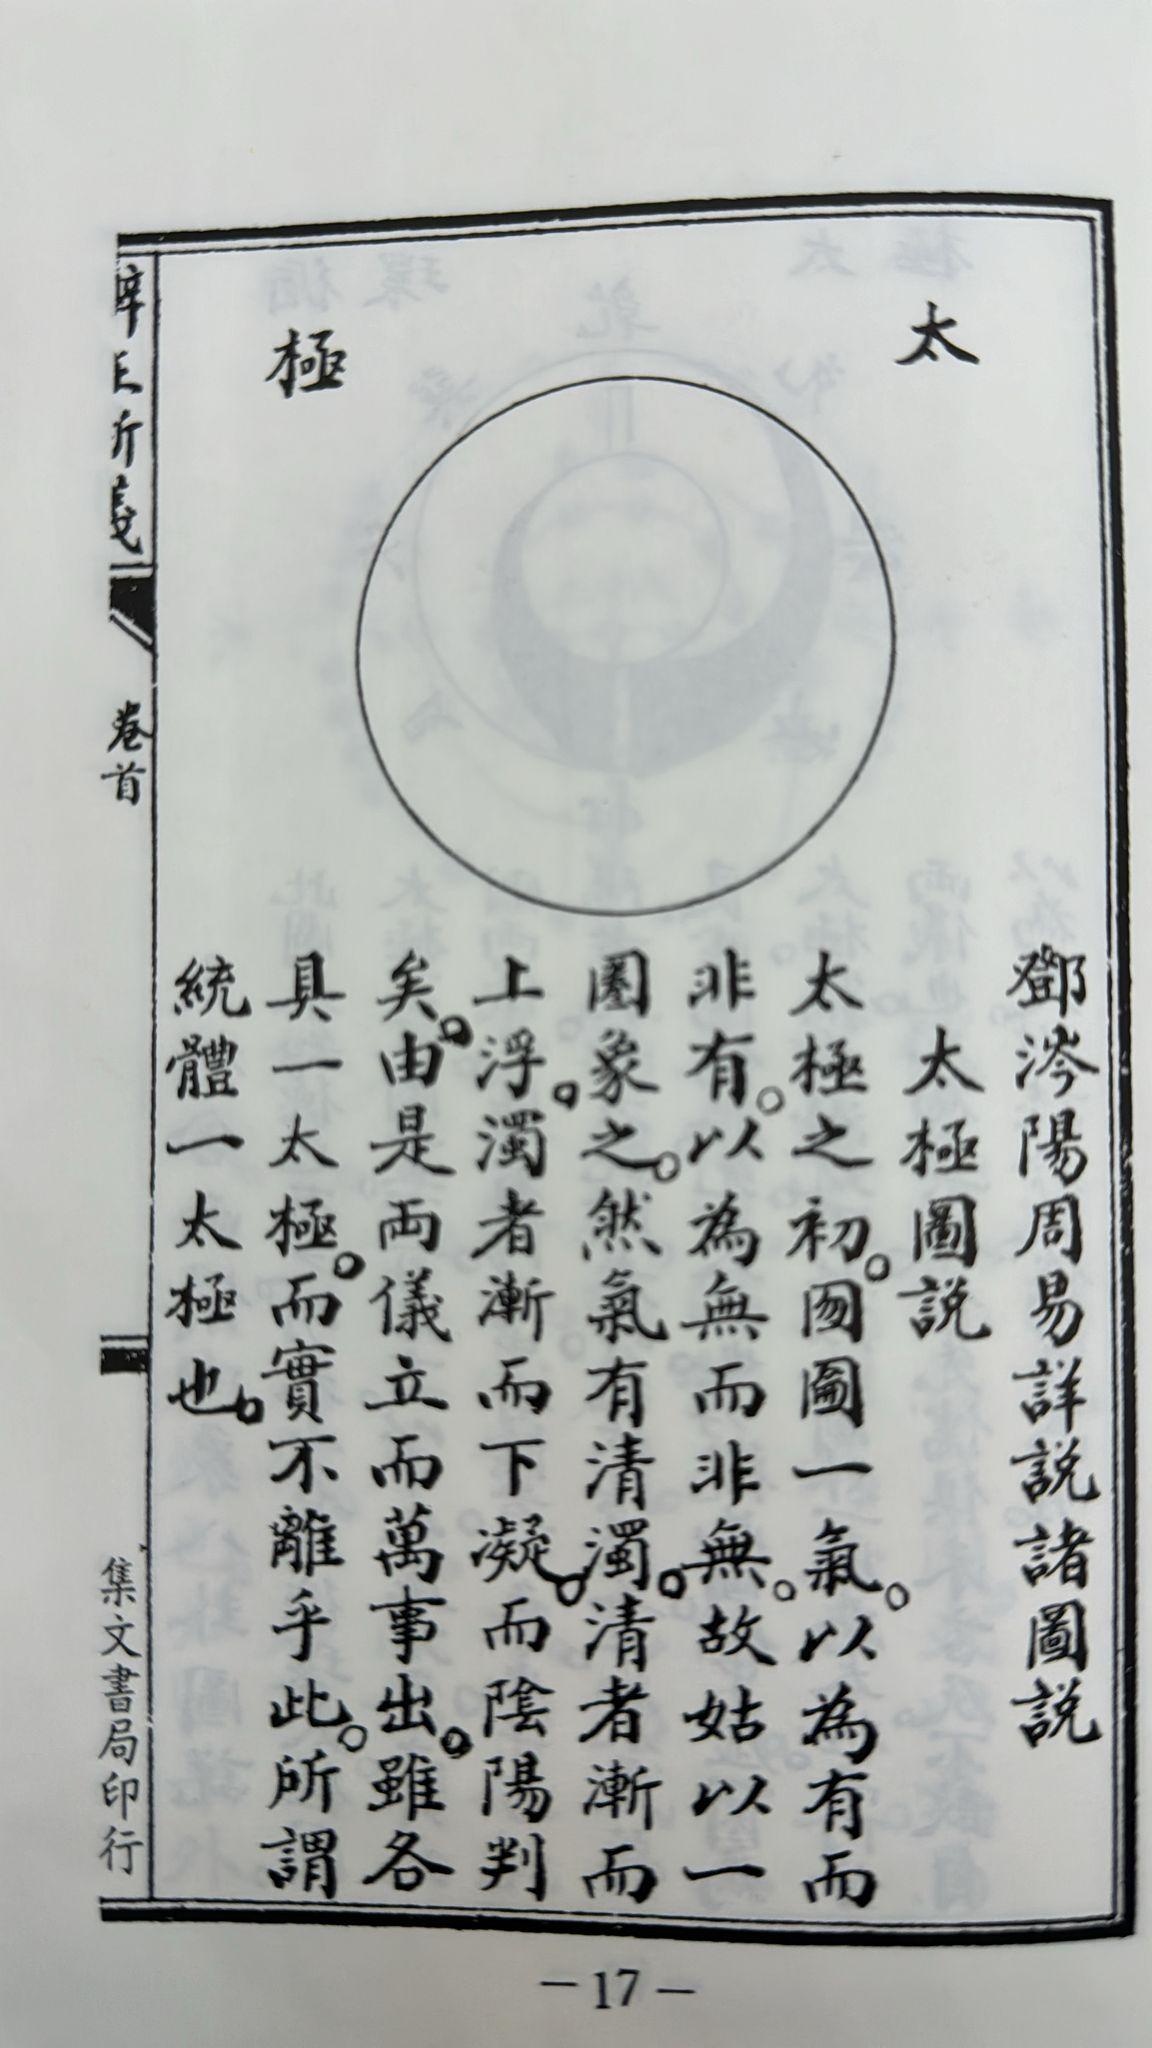 太極
鄧涔陽周易詳說諸圖說
太極圖說
太極之初。囫圇一氣。以為有而
非有。以為無而非無。故姑以一
圈象之。然氣有清濁。清者漸而
上浮。濁者漸而下凝。而陰陽判
矣。由是両儀立而萬事出。雖各
具一太極。而實不離乎此。所謂
統體一太極也。
卷首
集文書局印行
－17－